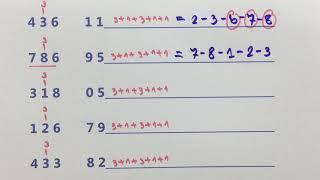 3
436 11 3+1+3+1+1 = 2-3-6-7-8
3
786 95 3+1+3+1+1 = 7-8-1-2-3
3
318 05 3+1+3+1+1
3
126 79 3+1+3+1+1
3
433 82 3+1+3+1+1